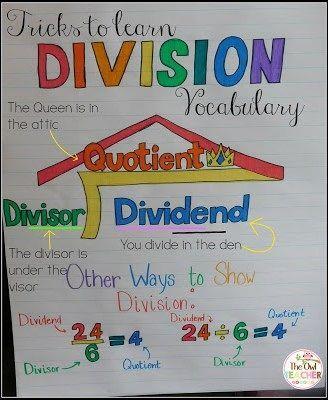 Tricks to learn
DIVISION
Vocabulary
The Queen is in
the attic
Quotient
Divisor
Dividend
The divisor is
under the
visor
You divide in the den
Other Ways to Show
Division:
Dividend
24
6
=4
Divisor
Quotient
Dividend
Quotient
24÷6=4
Divisor
The Owl
TEACHER